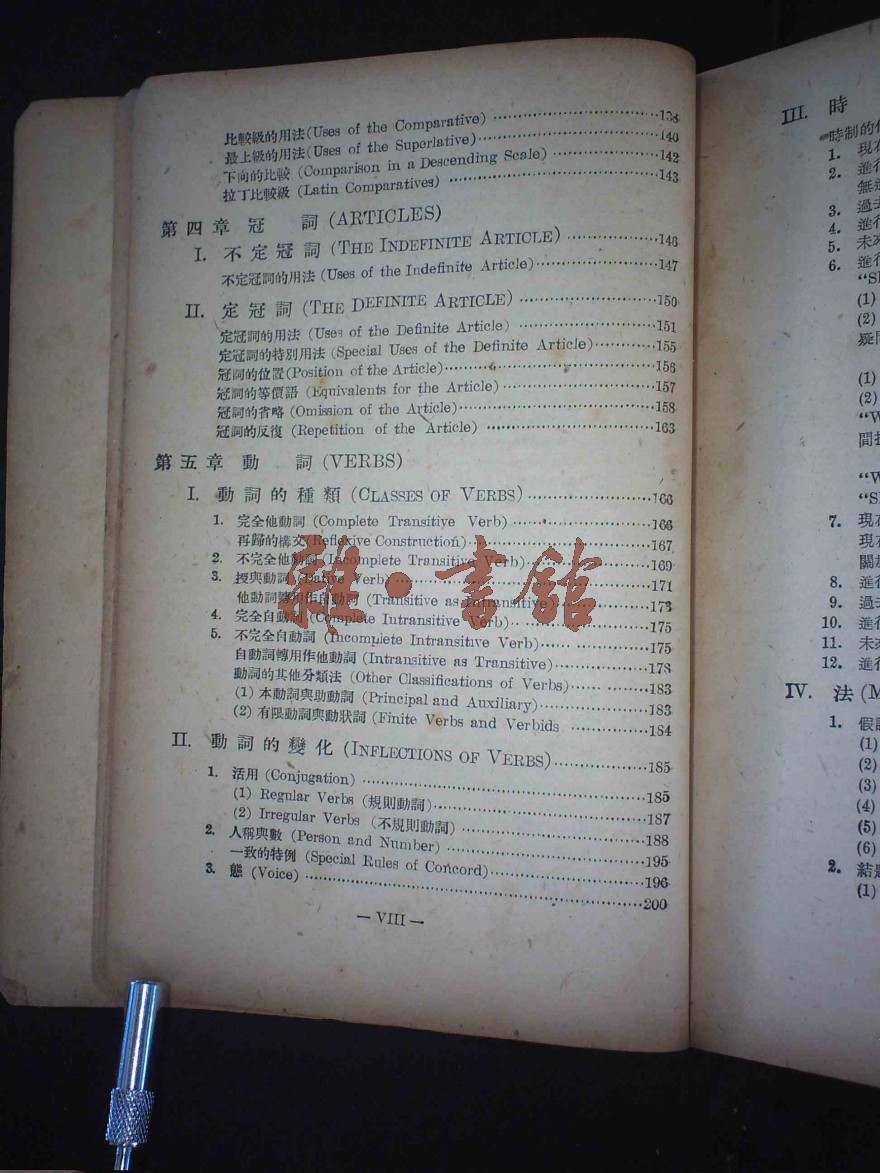 比較級的用法(Uses of the Comparative) ……138
最上級的用法(Uses of the Superlative)……140
下向的比較 (Comparison in a Descending Scale) ……142
拉丁比較級 (Latin Comparatives) ……143
第四章 冠 詞 (ARTICLES)
I. 不定冠詞 (THE INDEFINITE ARTICLE) ……146
不定冠詞的用法 (Uses of the Indefinite Article)……147
II. 定冠詞 (THE DEFINITE ARTICLE) ……150
定冠詞的用法 (Uses of the Definite Article) ……151
定冠詞的特別用法 (Special Uses of the Definite Article)……155
冠詞的位置(Position of the Article)……156
冠詞的等價語 (Equivalents for the Article)……157
冠詞的省略 (Omission of the Article)……158
冠詞的反復 (Repetition of the Article) ……163
第五章 動 詞 (VERBS)
I. 動詞的種類 (CLASSES OF VERBS) ……166
1. 完全他動詞 (Complete Transitive Verb) ……166
再歸的構文(Reflexive Construction)……167
2. 不完全他動詞(Incomplete Transitive Verb)……169
3. 授與動詞(Dative Verb)……171
他動詞轉用作自動詞 (Transitive as Intransitive)……173
4. 完全自動詞 (Complete Intransitive Verb)……175
5. 不完全自動詞 (Incomplete Intransitive Verb)……175
自動詞轉用作他動詞 (Intransitive as Transitive)……178
動詞的其他分類法 (Other Classifications of Verbs)……183
(1) 本動詞與助動詞 (Principal and Auxiliary)……183
(2) 有限動詞與動狀詞 (Finite Verbs and Verbids ……184
II. 動詞的變化 (INFLECTIONS OF VERBS)……185
1. 活用 (Conjugation) ……185
(1) Regular Verbs (規則動詞)……187
(2) Irregular Verbs (不規則動詞) ……188
2. 人稱與數 (Person and Number) ……195
一致的特例 (Special Rules of Concord)……196
3. 態 (Voice) ……200
— VIII —
雜·書館
III. 時
時制的
1. 現在
2. 進行
3. 過去
4. 進行
5. 未來
6. 進行
(1)
(2)
疑問
(1)
(2)
7. 現在
現在
關於
8. 進行
9. 過去
10. 進行
11. 未來
12. 進行
IV. 法 (M
1. 假設
(1)
(2)
(3)
(4)
(5)
(6)
2. 結
(1)